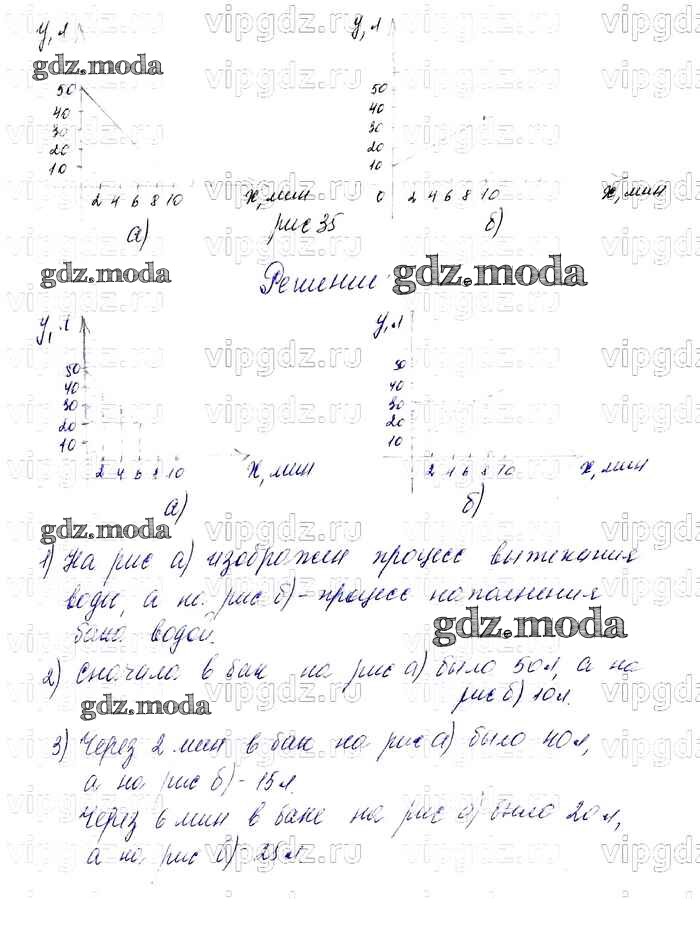 у, л
у, л
gdz.moda
50
40
30
20
10
50
40
30
20
10
0
2 4 6 8 10
х, мин
2 4 6 8 10
х, мин
а)
рис 35
б)
gdz.moda
Решение
gdz.moda
у, л
у, л
50
40
30
20
10
50
40
30
20
10
2 4 6 8 10
х, мин
2 4 6 8 10
х, мин
а)
б)
gdz.moda
1) На рис а) изображен процесс вытекания
воды, а на рис б) - процесс наполнения
бака водой.
gdz.moda
2) Сначала в бак на рис а) было 50 л, а на
рис б) 10 л.
gdz.moda
3) Через 2 мин в бак на рис а) было 40 л,
а на рис б) - 15 л.
Через 6 мин в баке на рис а) было 20 л,
а на рис б) - 25 л.
vipgdz.ru